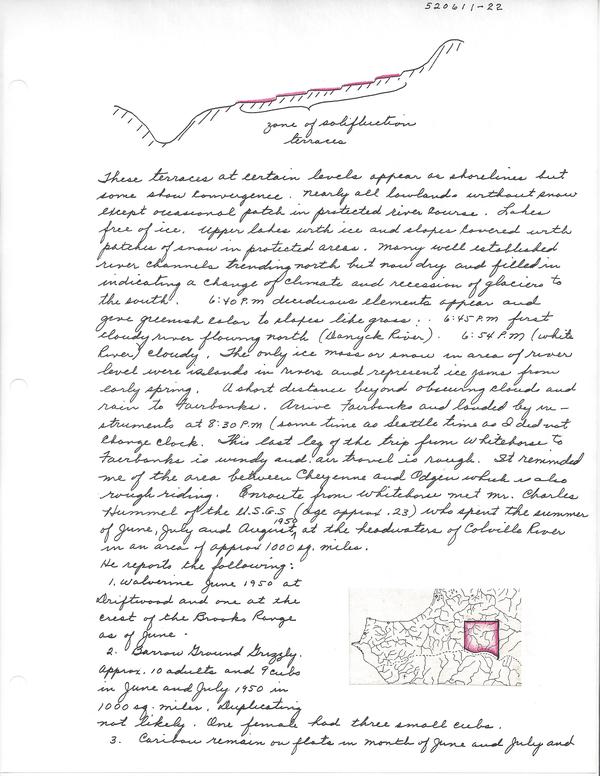 520611-22
zone of solifluction
terraces
These terraces at certain levels appear as shorelines but
some show convergence. Nearly all lowlands without snow
except occasional patch in protected river course. Lakes
free of ice. Upper lakes with ice and slopes covered with
patches of snow in protected areas. Many well established
river channels trending north but now dry and filled in
indicating a change of climate and recession of glaciers to
the south. 6:40 P.M deciduous elements appear and
give greenish color to slopes like grass. 6:45 P.M first
cloudy river flowing north (Danyck River). 6:54 P.M (white
River) cloudy. The only ice mass or snow in area of river
level were islands in rivers and represent ice jams from
early spring. A short distance beyond obscuring clouds and
rain to Fairbanks. Arrive Fairbanks and landed by in-
struments at 8:30 P.M (same time as Seattle time as I did not
change clock. This last leg of the trip from Whitehorse to
Fairbanks is windy and air travel is rough. It reminded
me of the area between Cheyenne and Ogden which is also
rough riding. Enroute from Whitehorse met Mr. Charles
Hummel of the U.S.G.S (age approx. 23) who spent the summer
of June, July and August, 1950 at the headwaters of Colville River
in an area of approx 1000 sq. miles.
He reports the following:
1. Wolverine June 1950 at
Driftwood and one at the
crest of the Brooks Range
as of June.
2. Barrow Ground Grizzly.
Approx. 10 adults and 9 cubs
in June and July 1950 in
1000 sq. miles. Duplicating
not likely. One female had three small cubs.
3. Caribou remain on flats in month of June and July and